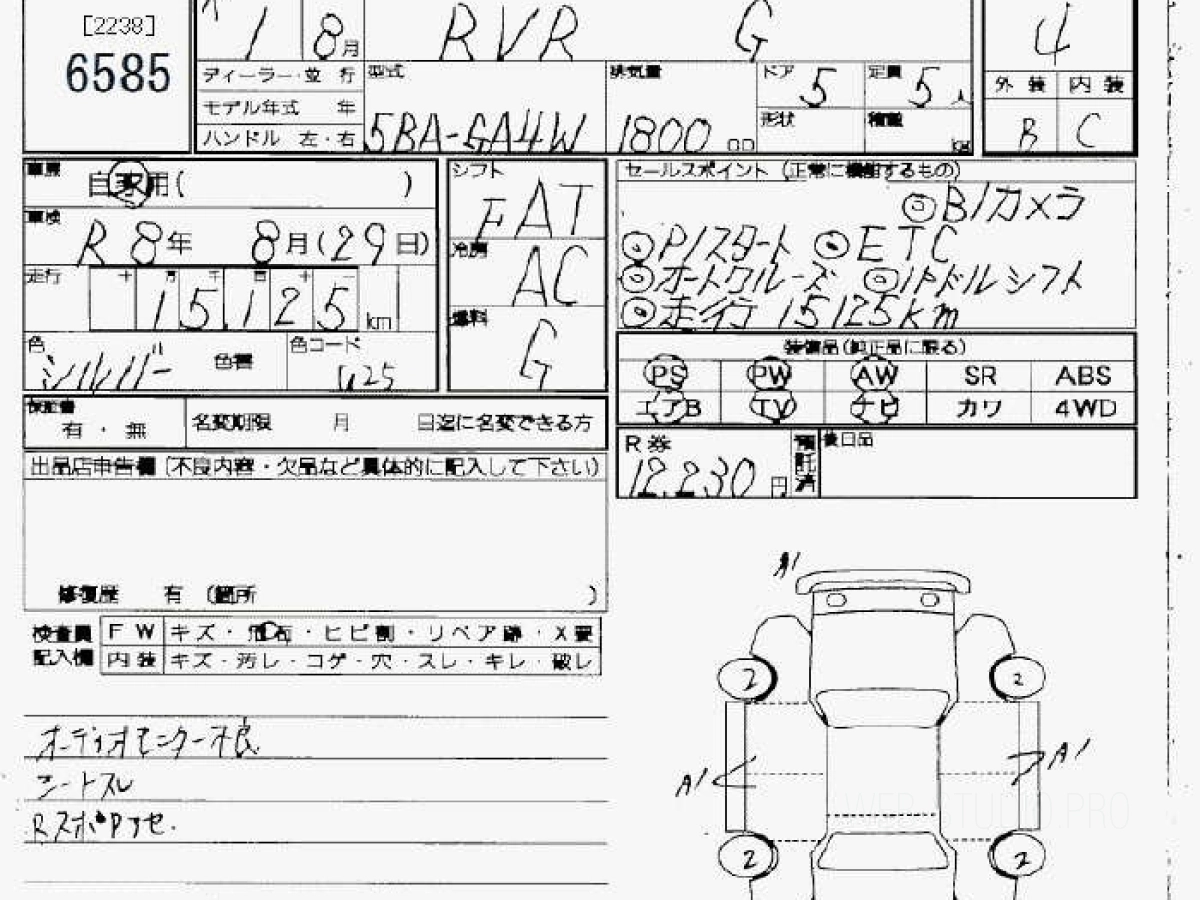 [2238]
6585
1 8月 RVR G 4
ディーラー・並 行 型式 排気量 ドア 5 定員 5人 外装 内装
モデル年式 年
ハンドル 左・右 5BA-GA4W 1800 CC 形状 積載 kg B C
車歴 自家用( ) シフト FAT セールスポイント (正常に機能するもの)
◎B/カメラ
車検 R 8年 8月(29日) 冷房 AC ◎P/スタート ◎ETC
走行 十 万 千 百 十 一 ◎オートクルーズ ◎パドルシフト
15,125 km 燃料 G ◎走行 15125km
色 シルバー 色替 色コード U25 装備品(純正品に限る)
PS PW AW SR ABS
エアB TV ナビ カワ 4WD
保証書 有・無 名変期限 月 日迄に名変できる方
R券 12,230円 預託済 後日品
出品店申告欄 (不良内容・欠品など具体的に記入して下さい)
修復歴 有 (箇所 )
検査員 記入欄
FW キズ・飛石・ヒビ割・リペア跡・X要
内装 キズ・汚レ・コゲ・穴・スレ・キレ・破レ
オーディオモニター不良
シートスレ
RスポPアセ.
A1
2 2
A1 A1
2 2
WEB STUDIO PRO